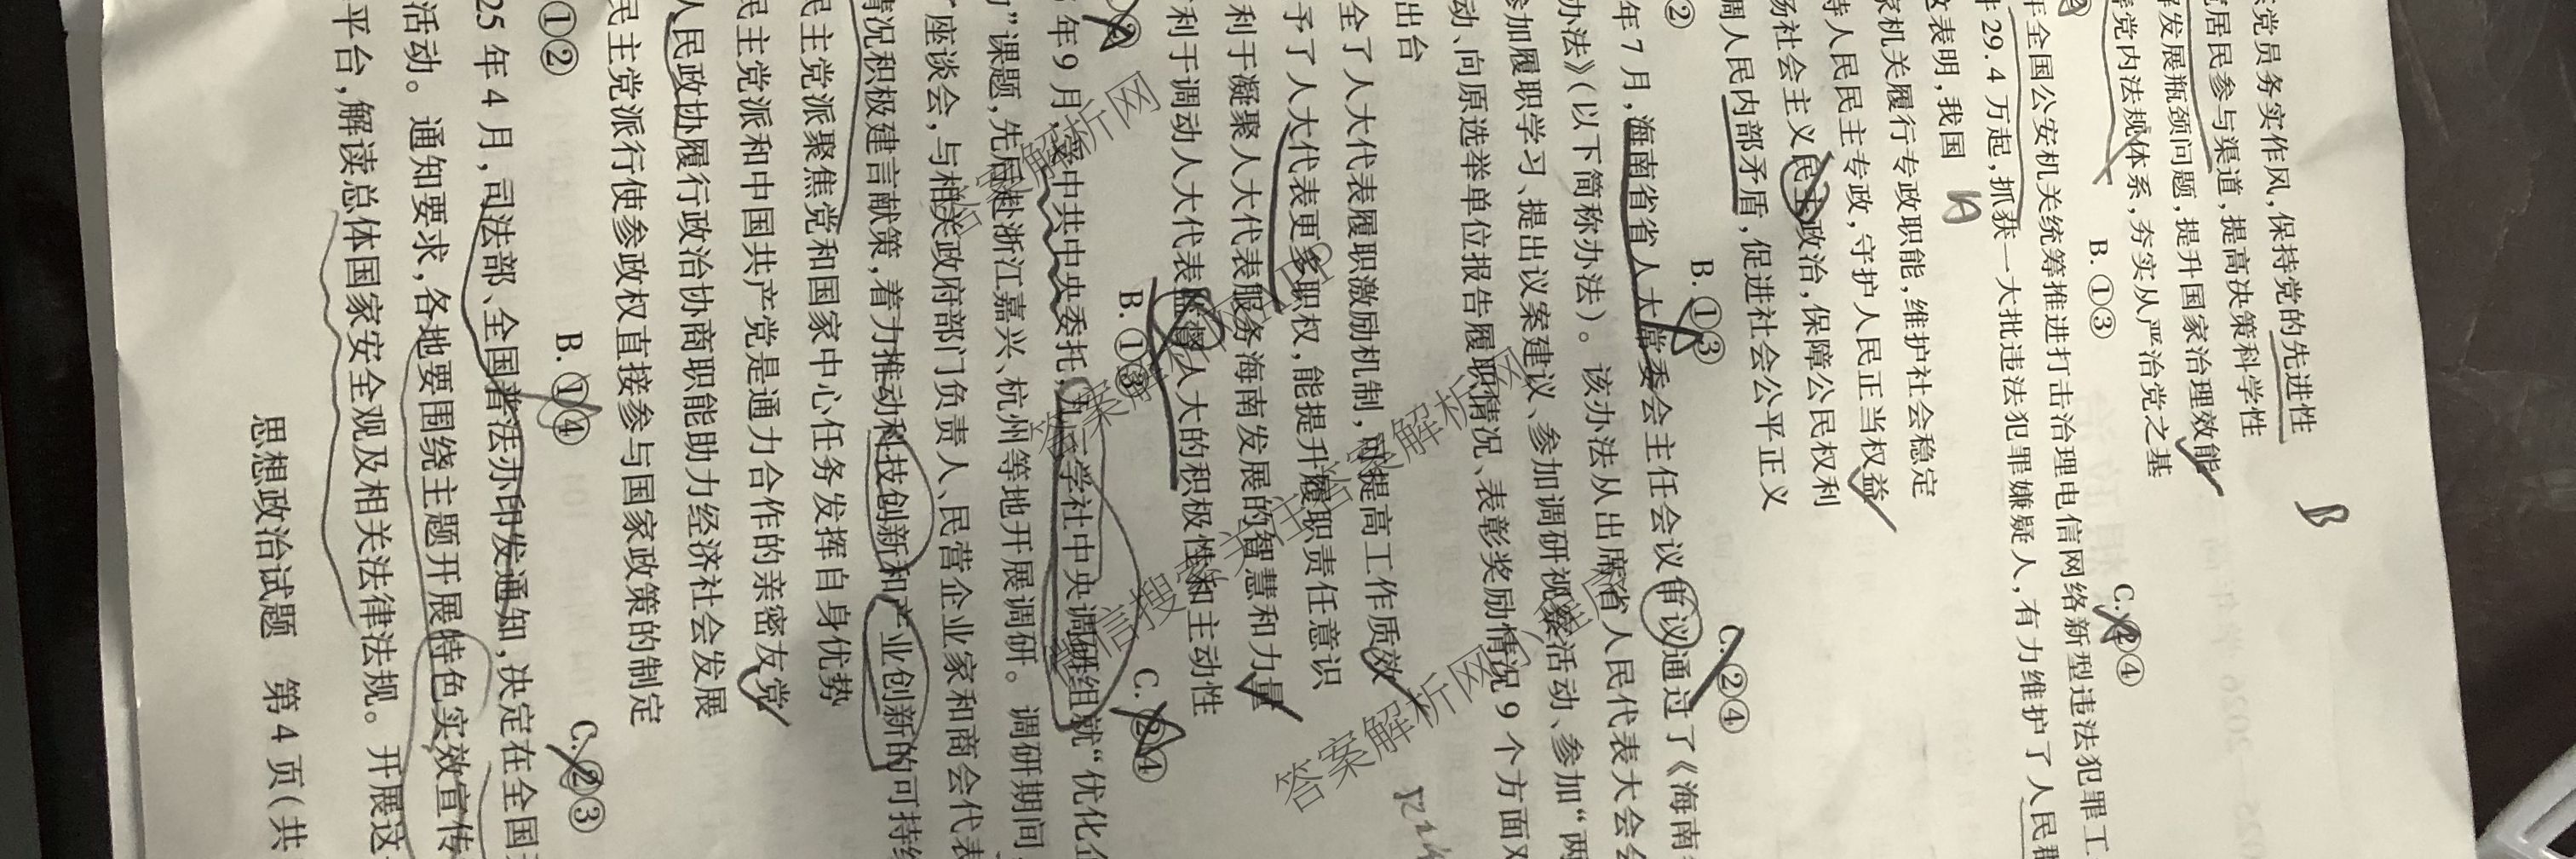 党员务实作风,保持党的先进性
居民参与渠道,提高决策科学性
发展瓶颈问题,提升国家治理效能
党内法规体系,夯实从严治党之基
B
B.①③
C.②④
年全国公安机关统筹推进打击治理电信网络新型违法犯罪工
29.4万起,抓获一大批违法犯罪嫌疑人,有力维护了人民群
这表明,我国
机关履行专政职能,维护社会稳定
持人民民主专政,守护人民正当权益
社会主义民主政治,保障公民权利
调人民内部矛盾,促进社会公平正义
②
B.①③
C.②④
年7月,海南省省人大常委会主任会议审议通过了《海南
办法》(以下简称办法)。该办法从出席省人民代表大会会
参加履职学习、提出议案建议、参加调研视察活动、参加“两
动、向原选举单位报告履职情况、表彰奖励情况9个方面对
出台
全了人大代表履职激励机制,可提高工作质效
予了人大代表更多职权,能提升履职责任意识
利于凝聚人大代表服务海南发展的智慧和力量
利于调动人大代表监督人大的积极性和主动性
B.①③
C.②④
年9月,受中共中央委托,九三学社中央调研组就“优化企
”课题,先后赴浙江嘉兴、杭州等地开展调研。调研期间
座谈会,与相关政府部门负责人、民营企业家和商会代表
情况积极建言献策,着力推动科技创新和产业创新的可持续
民主党派聚焦党和国家中心任务发挥自身优势
民主党派和中国共产党是通力合作的亲密友党
人民政协履行政治协商职能助力经济社会发展
民主党派行使参政权直接参与国家政策的制定
①②
B.①④
C.②③
25年4月,司法部、全国普法办印发通知,决定在全国
活动。通知要求,各地要围绕主题开展特色实效宣传
平台,解读总体国家安全观及相关法律法规。开展这
思想政治试题 第4页(共
答案解析网